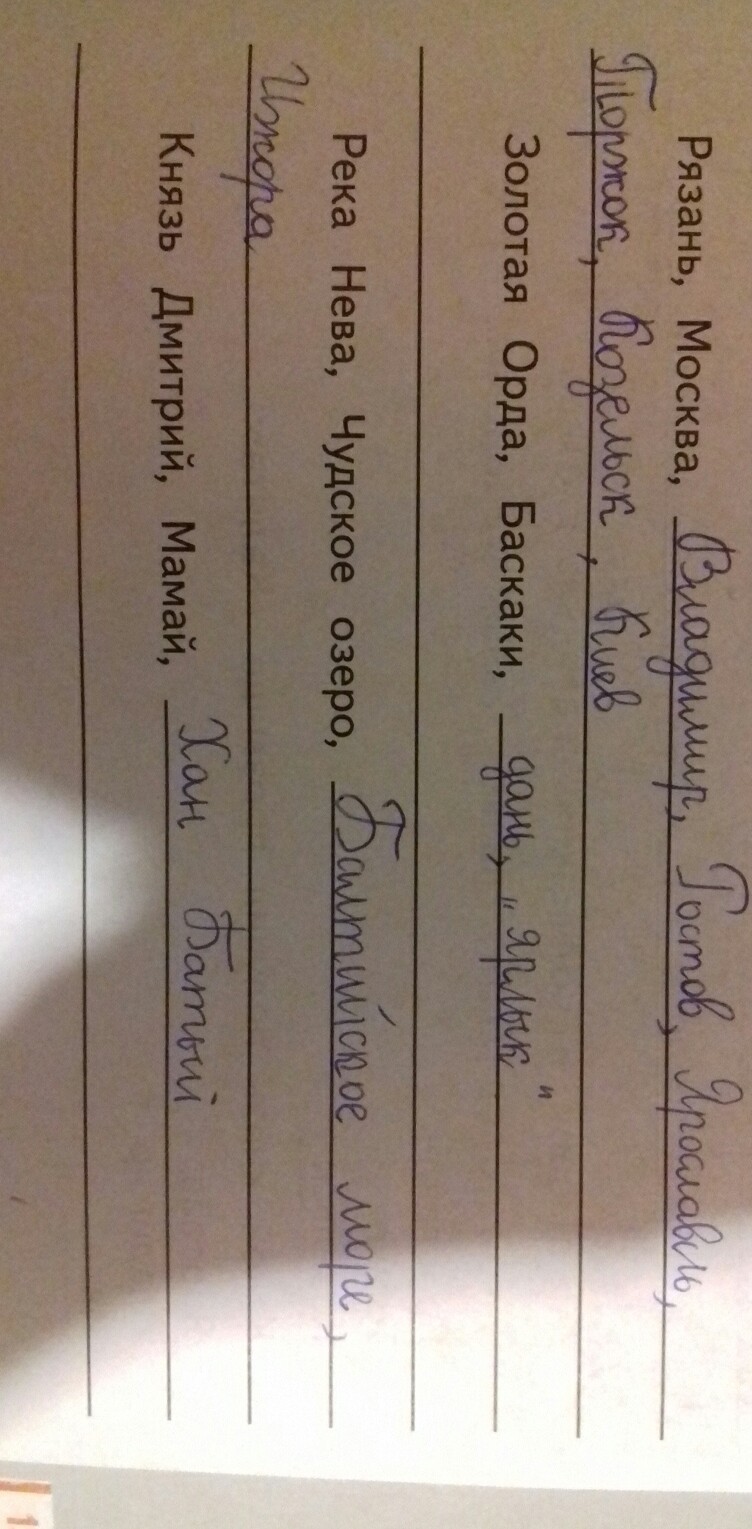 Рязань, Москва, Владимир, Ростов, Ярославль,
Торжок, Козельск, Киев
Золотая Орда, Баскаки, дань, „ярлык"
Река Нева, Чудское озеро, Балтийское море,
Ижора
Князь Дмитрий, Мамай, Хан Батый
1